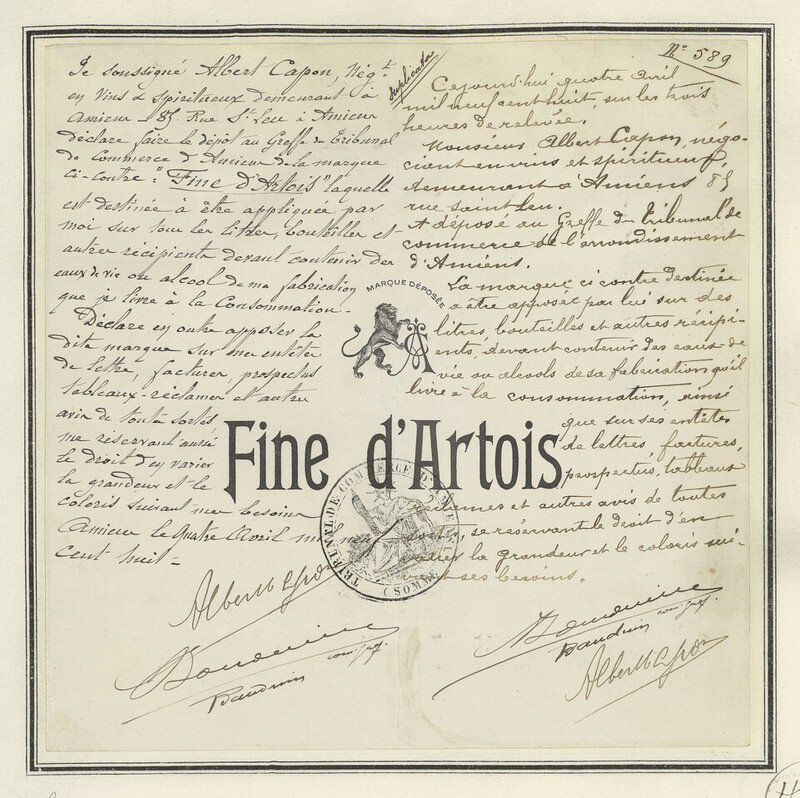 Je soussigné Albert Capon, Négt
en Vins & Spiritueux demeurant à
Amiens 85 Rue St Leu à Amiens
déclare faire le dépôt au Greffe du Tribunal
de Commerce d'Amiens de la marque
ci-contre: "Fine d'Artois" laquelle
est destinée à être appliquée par
moi sur tous les litres, bouteilles et
autres récipients devant contenir des
eaux de vie ou alcool de ma fabrication
que je livre à la Consommation.-
Déclare en outre apposer la
dite marque sur mes entêtes
de lettre, factures, prospectus
tableaux-réclames et autres
avis de toutes sortes,
me réservant aussi
le droit d'en varier
la grandeur et le
coloris suivant mes besoins
Amiens le Quatre Avril mil neuf
cent huit -
Albert Capon
Baudrin
duplicata
No 589
Cejourd'hui quatre avril
mil neuf cent huit, sur les trois
heures de relevée.
Monsieur Albert Capon, négo-
ciant en vins et spiritueux,
demeurant à Amiens 85
rue Saint Leu.
A déposé au Greffe du Tribunal de
commerce de l'arrondissement
d'Amiens.
La marque ci contre destinée
a être apposée par lui sur des
litres, bouteilles et autres récipi-
ents, devant contenir des eaux-de-
vie ou alcools de sa fabrication qu'il
livre à la consommation, ainsi
que sur ses entêtes
de lettres, factures,
prospectus, tableaux
réclames et autres avis de toutes
sortes, se réservant le droit d'en
varier la grandeur et le coloris sui-
vant ses besoins.
Baudrin
Albert Capon
MARQUE DÉPOSÉE
Fine d'Artois
TRIBUNAL DE COMMERCE D'AMIENS
(SOMME)